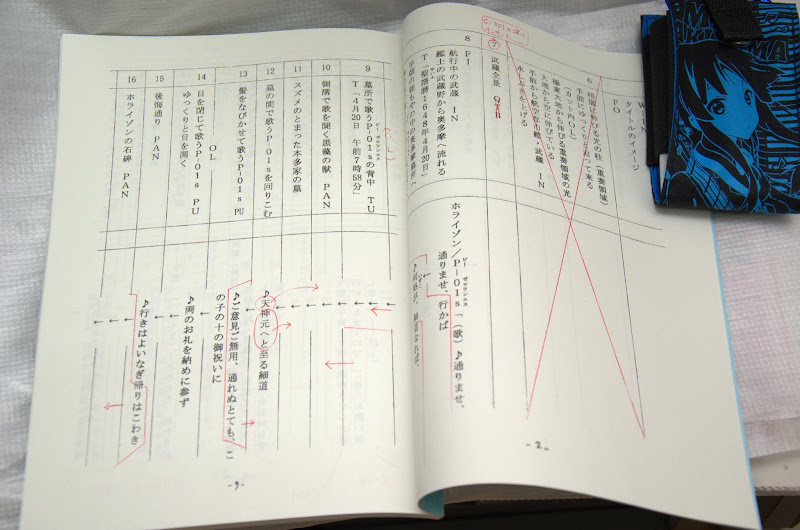 タイトルのイメージ
ＦＯ
6
水しぶきを上げる
7
武蔵全景
8
ＦＩ
航行中の武蔵 ＩＮ
艦上の武蔵野から奥多摩へ流れる
Ｔ「聖譜暦１６４８年４月２０日」
ホライゾン／Ｐ－０１ｓ「（歌）♪通りませ、
通りませ、行かば
－2－
9
墓所で歌うＰ－０１ｓの背中 ＴＵ
Ｔ「４月２０日 午前７時５８分」
10
側溝で歌を聞く黒藻の獣 ＰＡＮ
11
スズメのとまった本多家の墓
12
墓の間で歌うＰ－０１ｓを回りこむ
♪天神元へと至る細道
13
髪をなびかせて歌うＰ－０１ｓ ＰＵ
ＯＬ
♪ご意見ご無用、通れぬとても、こ
の子の十の御祝いに
14
目を閉じて歌うＰ－０１ｓ ＰＵ
ゆっくりと目を開く
♪両のお札を納めに参ず
15
後悔通り ＰＡＮ
16
ホライゾンの石碑 ＰＡＮ
♪行きはよいなぎ帰りはこわき
－3－